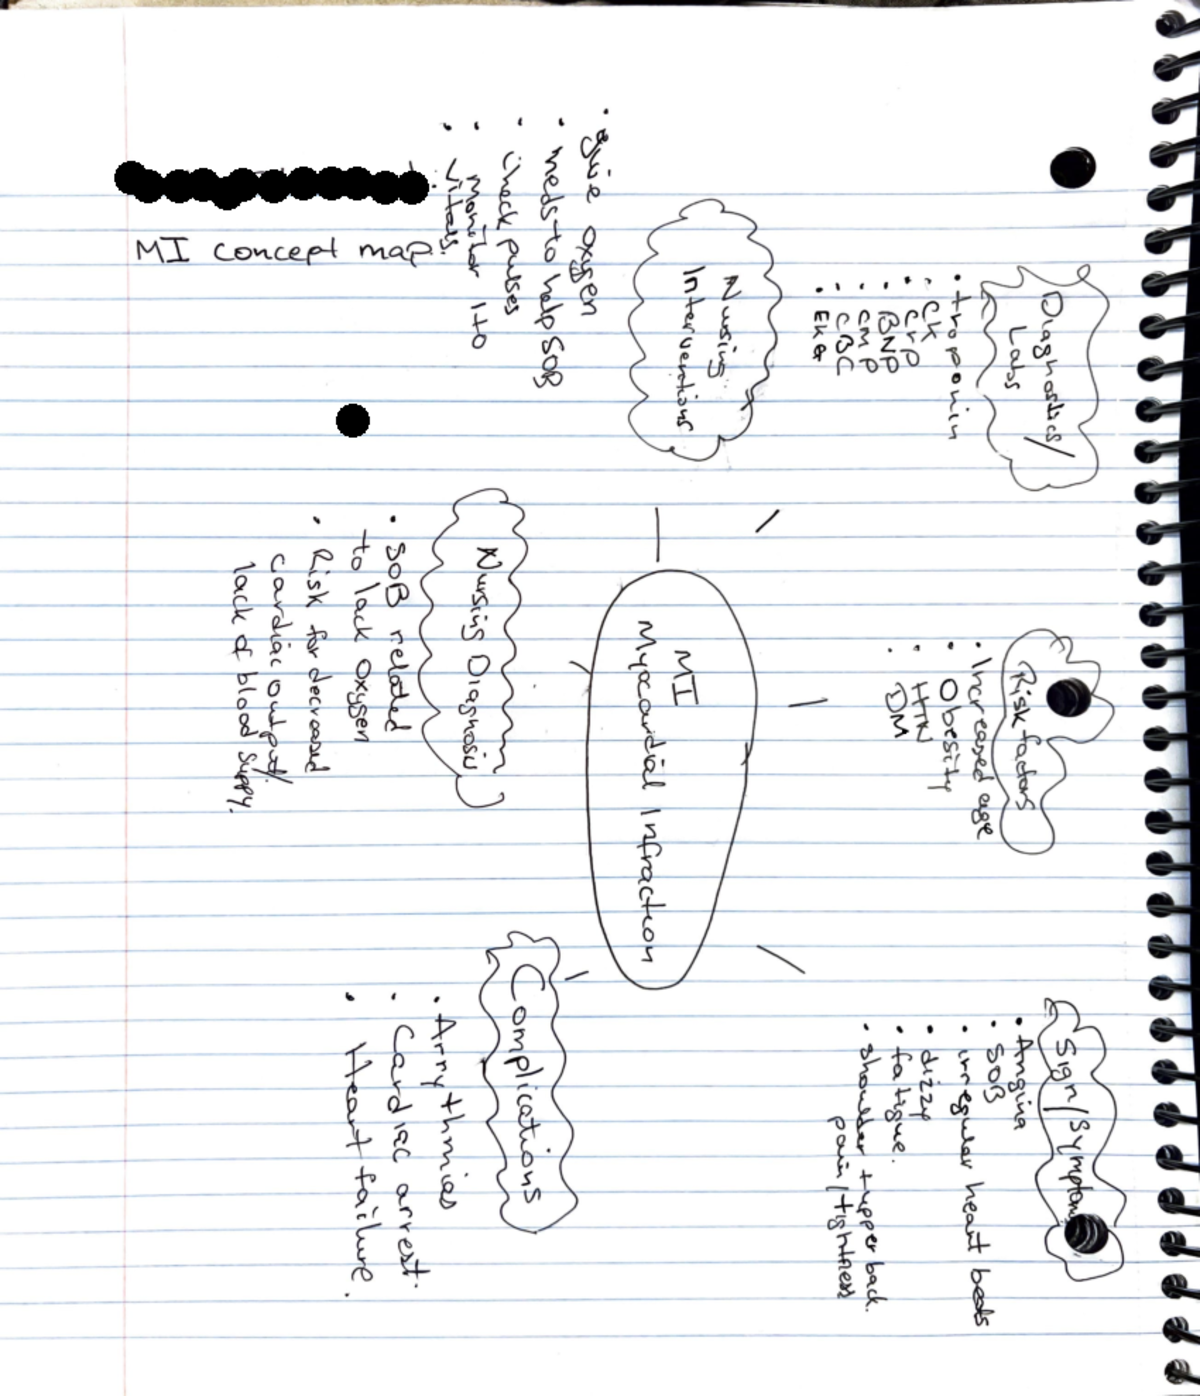 MI concept map
Diagnostics/
Labs
• troponin
• CK
• CRP
• BNP
• CMP
• CBC
• EKG
Risk factors
• Increased age
• Obesity
• HTN
• DM
Sign/Symptom
• Angina
• SOB
• irregular heart beats
• dizzy
• fatigue.
• shoulder + upper back
pain/tightness
Nursing
Interventions
• give oxygen
• meds to help SOB
• check pulses
• Monitor I+O
• Vitals.
MI
Myocardial Infraction
Nursing Diagnosis
• SOB related
to lack oxygen
• Risk for decreased
cardiac output/
lack of blood supply.
Complications
• Arrythmias
• Cardiac arrest.
• Heart failure.